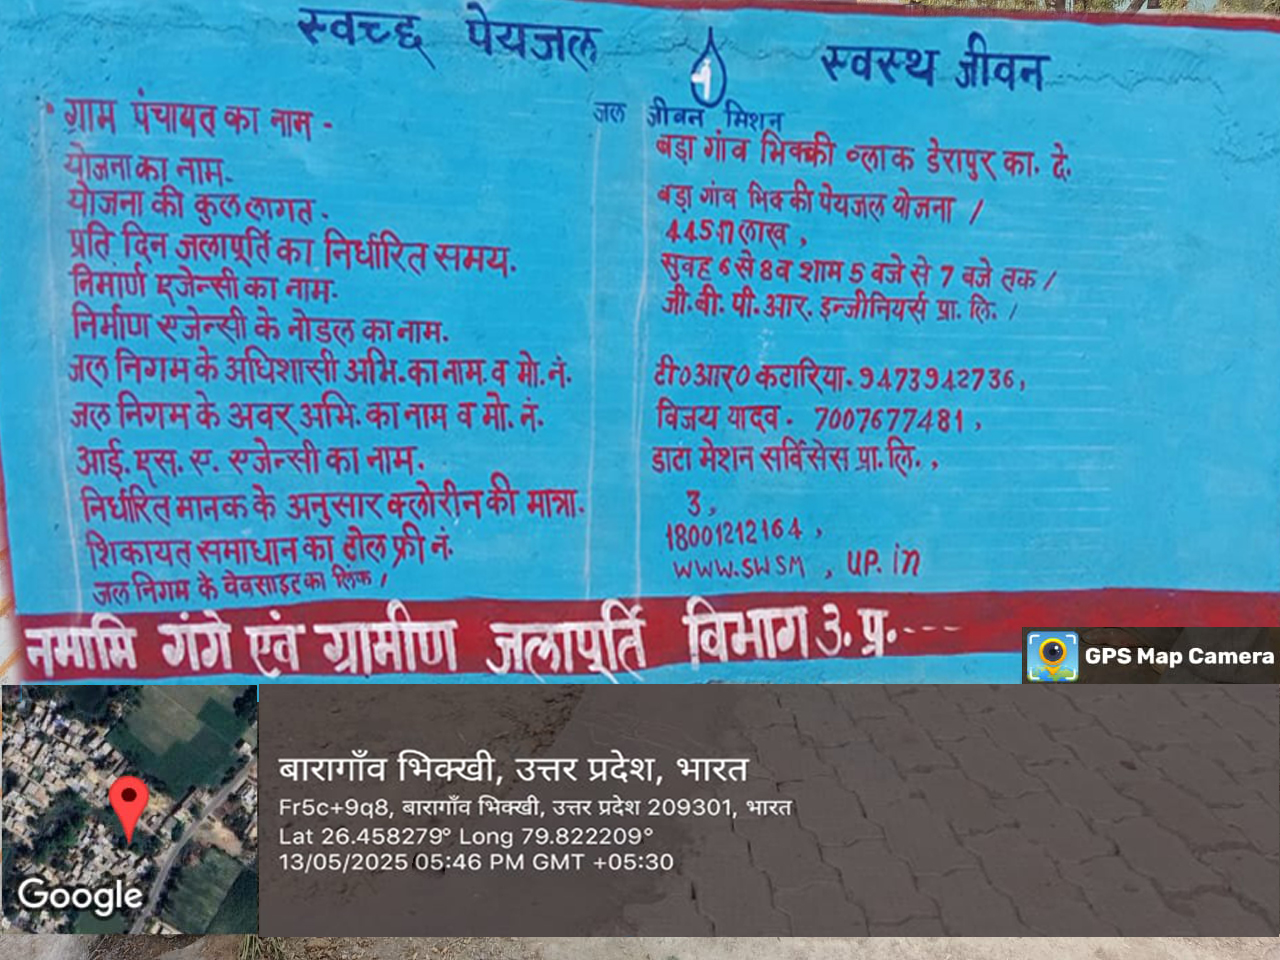 स्वच्छ पेयजल स्वस्थ जीवन
जल जीवन मिशन
ग्राम पंचायत का नाम - बड़ा गांव भिक्की ब्लाक डेरापुर का. दे.
योजना का नाम. बड़ा गांव भिक्की पेयजल योजना /
योजना की कुल लागत - लाख ,
प्रति दिन जलापूर्ति का निर्धारित समय. सुवह 6 से 8 व शाम 5 बजे से 7 बजे तक /
निमार्ण एजेन्सी का नाम. जी. वी. पी. आर. इन्जीनियर्स प्रा. लि. /
निर्माण एजेन्सी के नोडल का नाम.
जल निगम के अधिशासी अभि. का नाम. व मो. नं. टी0 आर0 कटारिया. 9473942736,
जल निगम के अवर अभि. का नाम व मो. नं. विजय यादव. 7007677481 ,
आई. एस. ए. एजेन्सी का नाम. डाटा मेशन सर्विसेस प्रा. लि. ,
निर्धारित मानक के अनुसार क्लोरीन की मात्रा. 3 ,
शिकायत समाधान का टोल फ्री नं. 18001212164 ,
जल निगम के वेवसाइट का लिंक / WWW.SWSM , UP. in
नमामि गंगे एवं ग्रामीण जलापूर्ति विभाग उ. प्र. ----
GPS Map Camera
बारागाँव भिक्खी, उत्तर प्रदेश, भारत
Fr5c+9q8, बारागाँव भिक्खी, उत्तर प्रदेश 209301, भारत
Lat 26.458279° Long 79.822209°
13/05/2025 05:46 PM GMT +05:30
Google